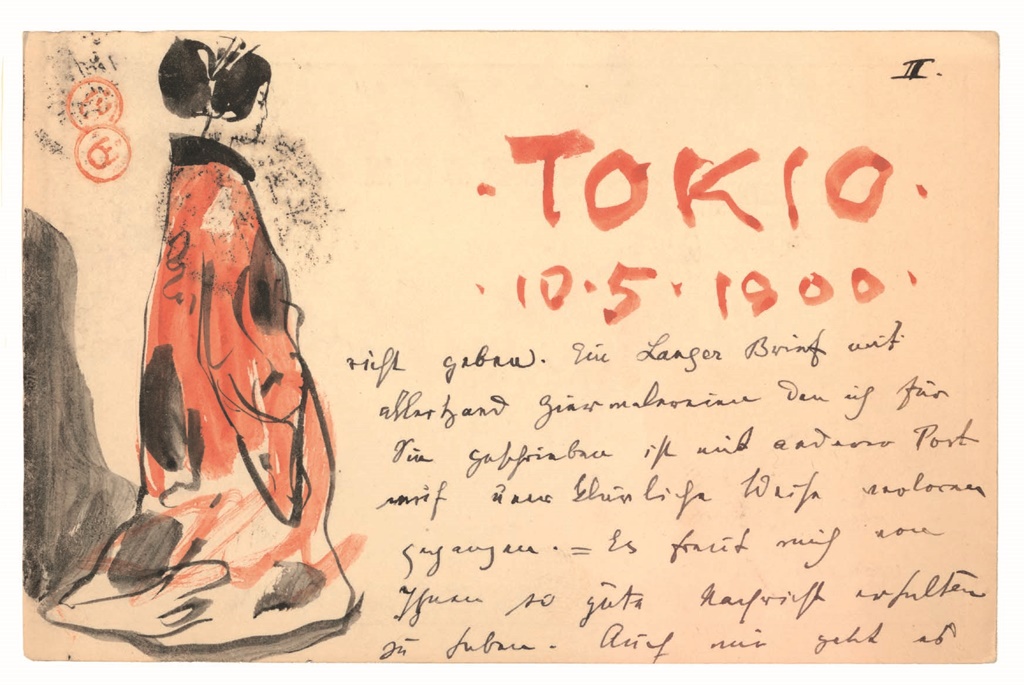 II.
·TOKIO·
·10·5·1900·
richt geben. Ein Langer Brief mit
allerhand Ziermalereien den ich für
Sie geschrieben ist mit anderer Post
auf unerklärliche Weise verloren
gegangen. = Es freut mich von
Ihnen so gute Nachricht erhalten
zu haben. Auch mir geht es